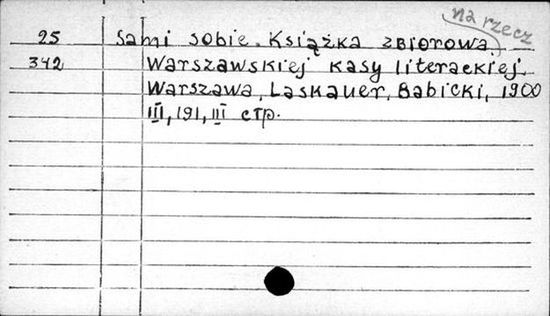 na rzecz
25 Sami sobie. Książka zbiorowa
342 Warszawskiej kasy literackiej.
Warszawa, Laskauer, Babicki, 1900
III, 191, III стр.